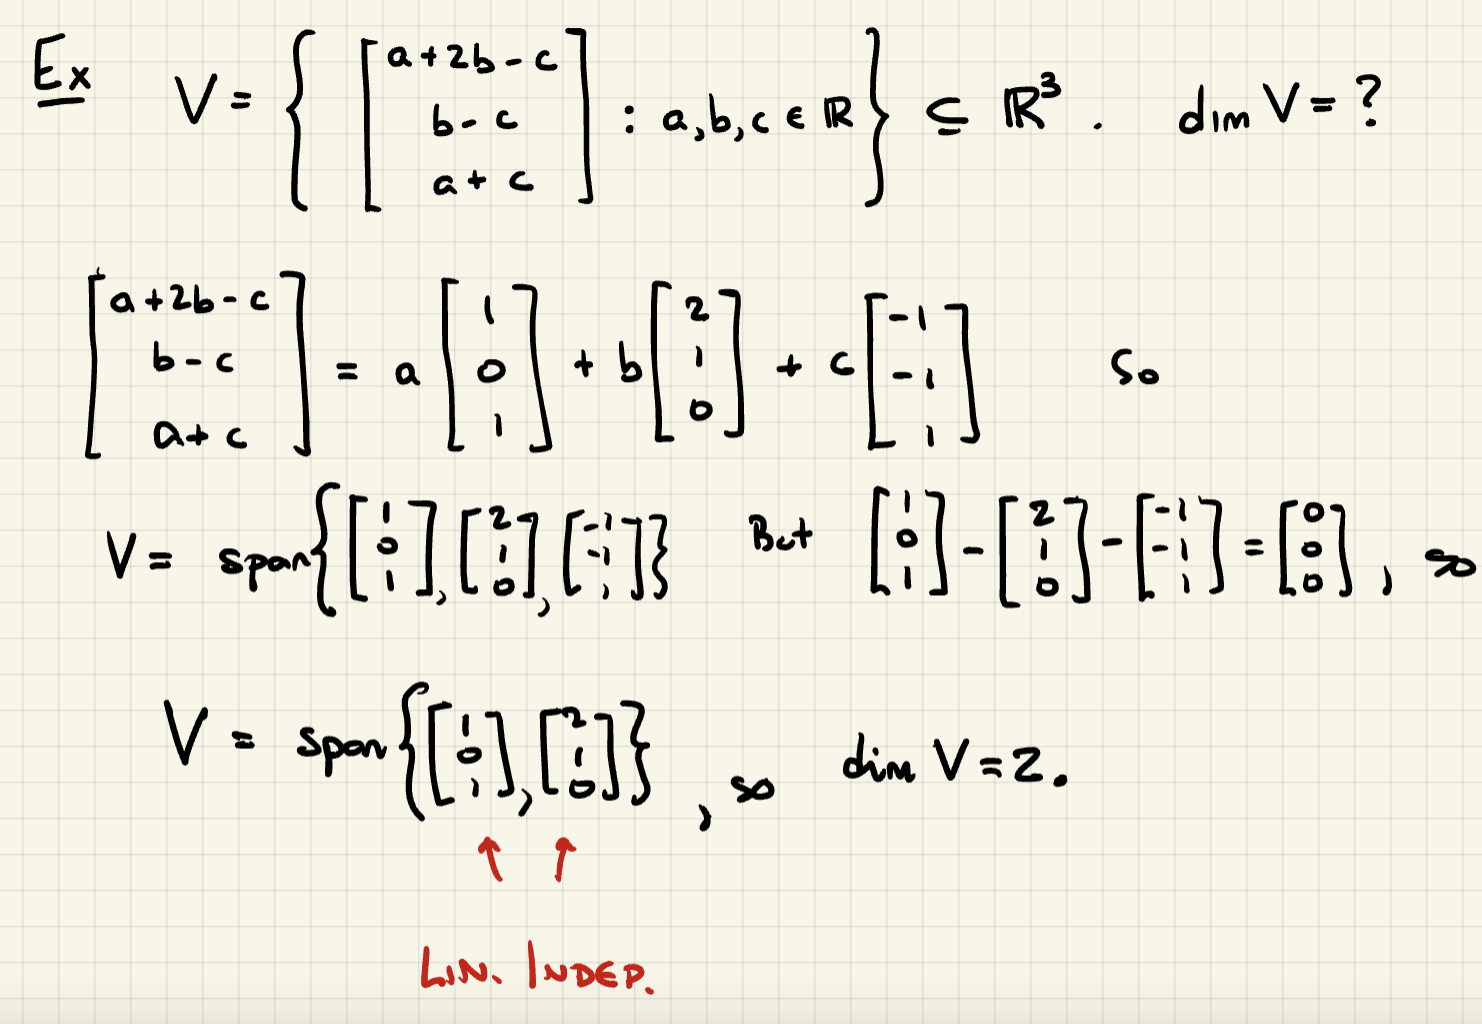 Ex V = { [a+2b-c; b-c; a+c] : a,b,c ∈ ℝ } ⊆ ℝ³. dim V = ?
[a+2b-c; b-c; a+c] = a[1; 0; 1] + b[2; 1; 0] + c[-1; -1; 1] So
V = span{[1; 0; 1], [2; 1; 0], [-1; -1; 1]} But [1; 0; 1] - [2; 1; 0] - [-1; -1; 1] = [0; 0; 0], so
V = span{[1; 0; 1], [2; 1; 0]}, so dim V = 2.
↑ ↑
LIN. INDEP.